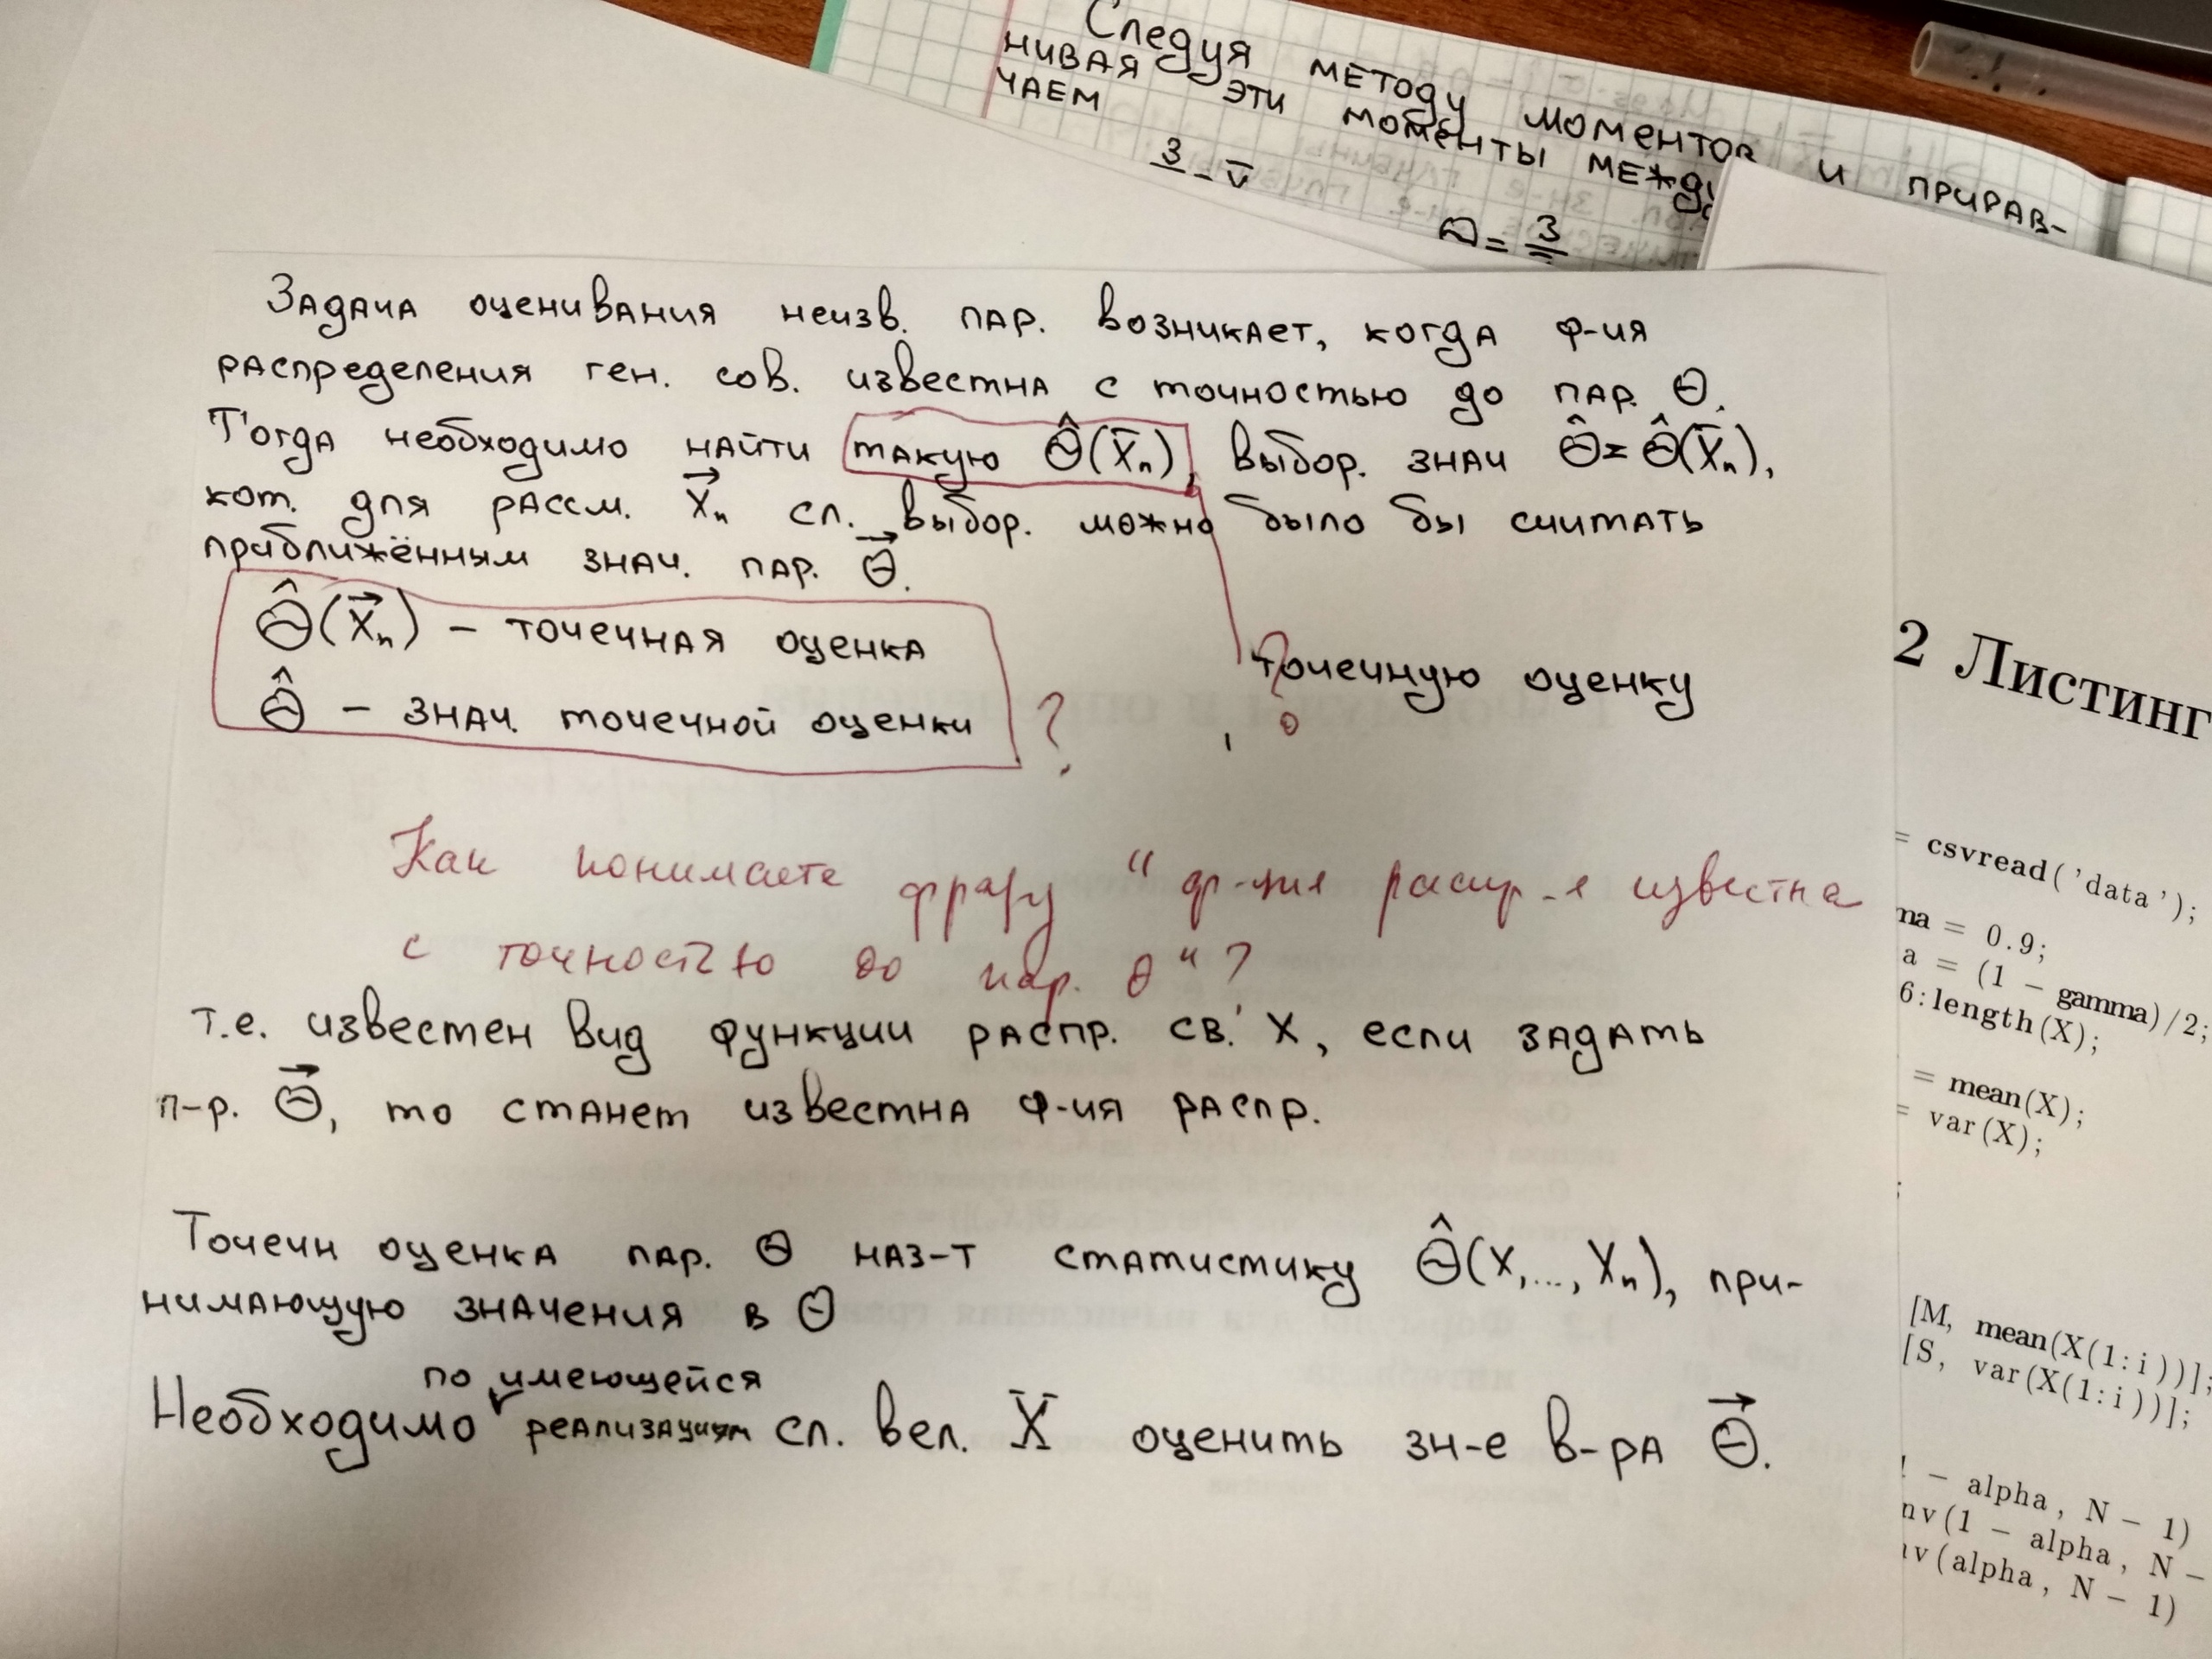 Следуя методу моментов и прирав-
нивая эти моменты между
чаем
3
Θ = 3
Задача оценивания неизв. пар. возникает, когда ф-ия
распределения ген. сов. известна с точностью до пар. Θ.
Тогда необходимо найти такую Θ̂(X⃗ₙ), выбор. знач Θ̂ = Θ̂(X⃗ₙ),
кот. для рассм. X⃗ₙ сл. выбор. можно было бы считать
приближённым знач. пар. Θ⃗.
Θ̂(X⃗ₙ) – точечная оценка
Θ̂ – знач. точечной оценки ?
точечную оценку
?
Как понимаете фразу "ф-ция распр-я известна
с точностью до пар. θ"?
т.е. известен вид функции распр. св. X, если задать
п-р. Θ⃗, то станет известна ф-ия распр.
Точечн оценка пар. Θ наз-т статистику Θ̂(X,..., Xₙ), при-
нимающую значения в Θ
по имеющейся
Необходимо реализации сл. вел. X̄ оценить зн-е в-ра Θ⃗.
2 Листинг
= csvread('data');
ma = 0.9;
a = (1 - gamma)/2;
6:length(X);
= mean(X);
= var(X);
;
[M, mean(X(1:i))];
[S, var(X(1:i))];
- alpha, N - 1)
nv(1 - alpha, N -
nv(alpha, N - 1)